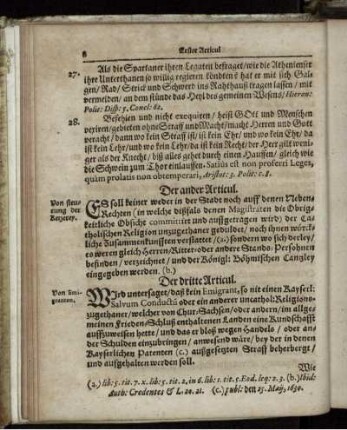 8 Erster Articul
27. Als die Spartaner ihren Legaten befraget/wie die Athenienser
ihre Unterthanen so willig regieren köndten? hat er mit sich Gal-
gen/Rad/Strick und Schwerd ins Rahthauß tragen lassen/mit
vermelden/an dem stünde das Heyl des gemeinen Wesens/Hieron:
Polic: Diss: 5. Concl: 82.
28. Befehlen und nicht exequiren/heist GOtt und Menschen
vexiren/gebieten ohne Straff und Macht/macht Herren und Gott
veracht/dann wo kein Straff ist/ist kein Ehr/und wo kein Ehr/da
ist kein Lehr/und wo kein Lehr/da ist kein Recht/der Herr gilt weni-
ger als der Knecht/diß alles gehet durch einen Hauffen/gleich wie
die Schwein zum Thor einlauffen. Satius est non proferri Leges,
quàm prolatis non obtemperari, Aristot: 3. Polit: c. 8.
Der ander Articul.
Von
der
Ketzerey.
ES soll keiner weder in der Stadt noch auff denen Neben
Rechten (in welche dißfalls denen Magistraten die Obrig-
keitliche Obsicht committirt und auffgetragen wird) der Ca-
tholischen Religion unzugethaner geduldet/noch ihnen wöchent-
liche Zusammenkunfften verstattet/(a.) sondern wo sich derley/
es weren gleich Herren/Ritter/oder andere Stands-Persohnen
befinden/verzeichnet/und der Königl: Böhmischen Cantzley
eingegeben werden. (b.)
Der dritte Articul.
Von Emi-
granten.
WIrd untersaget/daß kein Emigrant, so nit einen Kayserl:
Salvum Conductū oder ein anderer uncathol: Religions-
zugethaner/welcher von Chur-Sachsen/oder andern/im allge-
meinen Frieden-Schluß enthaltenen Landen eine Kundschafft
auffzuweisen hette/und das er bloß wegen Handels/oder an-
der Schulden einzubringen/anwesend wäre/bey der in denen
Kayserlichen Patenten (c.) außgesetzten Straff beherbergt/
und auffgehalten werden soll.
Wie
(a.) lib: 5. tit. 7. x. lib: 5. tit. 2. in 6. lib: 1. tit. 5. Cod. leg: 2. 3. (b.) Ibid:
Auth: Credentes & L. 20. 21. (c.) publ: den 25. Maij, 1650.